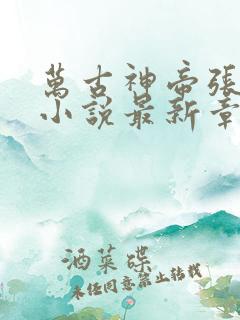 萬古神帝張
小說最新章
酒菜碟
未经同意禁止转载